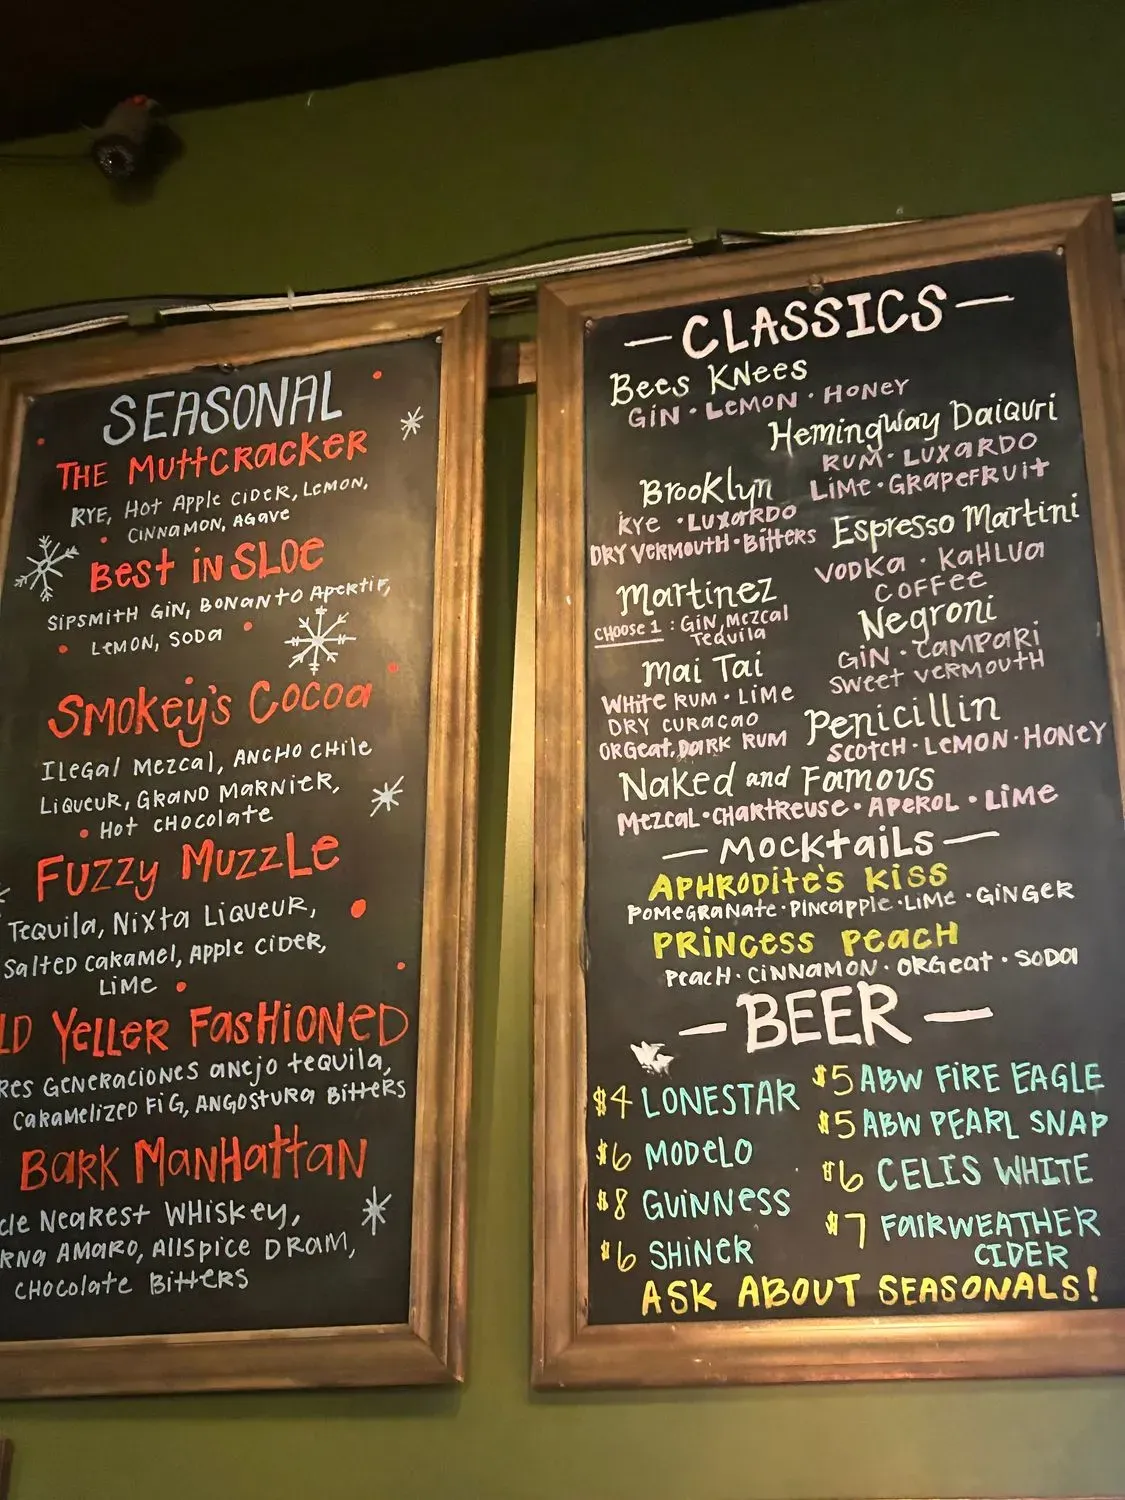 SEASONAL
THE MUTTCRACKER
RYE, HOT APPLE CIDER, LEMON,
CINNAMON, AGAVE
BEST IN SLOE
SIPSMITH GIN, BONANTO APERTIF,
LEMON, SODA
SMOKEY'S COCOA
ILEGAL MEZCAL, ANCHO CHILE
LIQUEUR, GRAND MARNIER,
HOT CHOCOLATE
FUZZY MUZZLE
TEQUILA, NIXTA LIQUEUR,
SALTED CARAMEL, APPLE CIDER,
LIME
LD YELLER FASHIONED
RES GENERACIONES ANEJO TEQUILA,
CARAMELIZED FIG, ANGOSTURA BITTERS
BARK MANHATTAN
CLE NEAREST WHISKEY,
RNA AMARO, ALLSPICE DRAM,
CHOCOLATE BITTERS
—CLASSICS—
Bees Knees
GIN · LEMON · HONEY
Hemingway Daiquri
RUM · LUXARDO
LIME · GRAPEFRUIT
Brooklyn
RYE · LUXARDO
DRY VERMOUTH · BITTERS
Espresso Martini
VODKA · KAHLUA
COFFEE
Martinez
CHOOSE 1 : GIN, MEZCAL
TEQUILA
Negroni
GIN · CAMPARI
SWEET VERMOUTH
Mai Tai
WHITE RUM · LIME
DRY CURACAO
ORGEAT, DARK RUM
Penicillin
SCOTCH · LEMON · HONEY
Naked and Famous
MEZCAL · CHARTREUSE · APEROL · LIME
— MOCKTAILS —
APHRODITE'S KISS
POMEGRANATE · PINEAPPLE · LIME · GINGER
PRINCESS PEACH
PEACH · CINNAMON · ORGEAT · SODA
— BEER —
$4 LONESTAR
$6 MODELO
$8 GUINNESS
$6 SHINER
$5 ABW FIRE EAGLE
$5 ABW PEARL SNAP
$6 CELIS WHITE
$7 FAIRWEATHER
CIDER
ASK ABOUT SEASONALS!